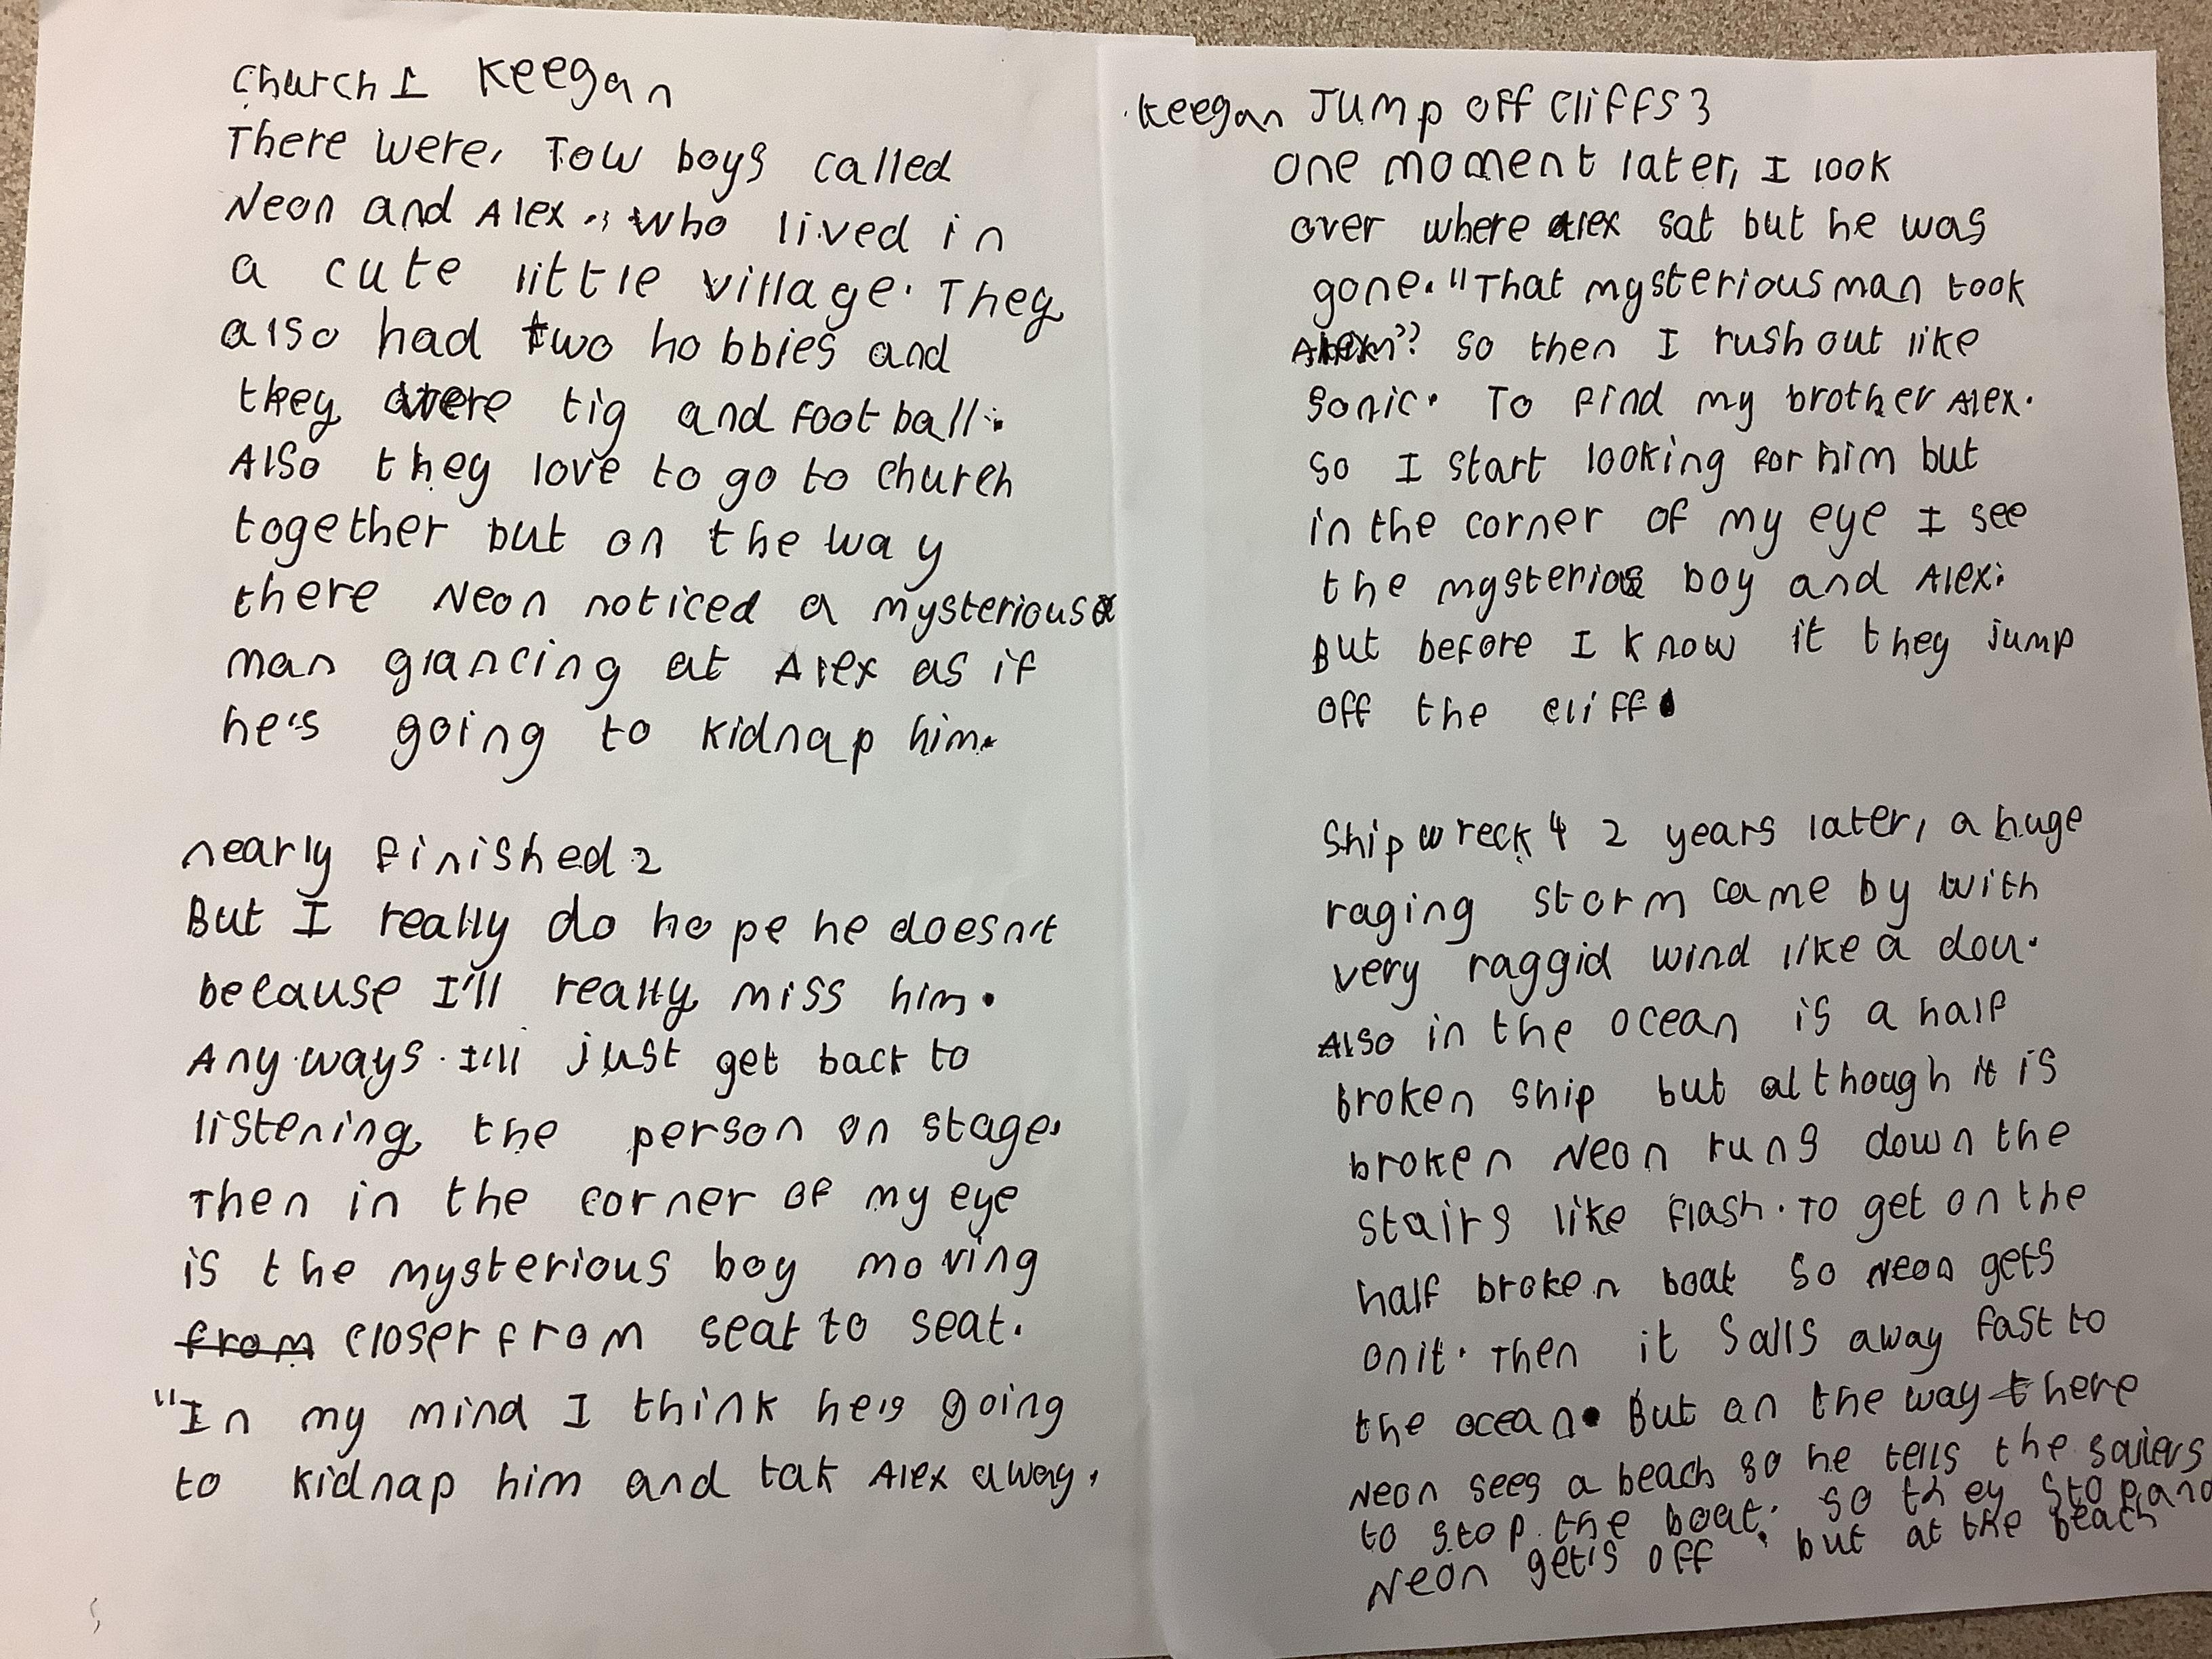 Church 1 Keegan
There were, Tow boys called
Neon and Alex., who lived in
a cute little village. They
also had two hobbies and
they were tig and football.
Also they love to go to church
together but on the way
there Neon noticed a mysterious
man glancing at Alex as if
he's going to kidnap him.
nearly finished 2
But I really do hope he doesn't
because I'll really miss him.
Any.ways.I'll just get back to
listening the person on stage.
Then in the corner of my eye
is the mysterious boy moving
from closer from seat to seat.
"In my mind I think he's going
to kidnap him and tak Alex away.
Keegan Jump off Cliffs 3
One moment later, I look
over where Alex sat but he was
gone. "That mysterious man took
so then I rush out like
Sonic. To find my brother Alex.
So I start looking for him but
in the corner of my eye I see
the mysterios boy and Alex.
But before I know it they jump
off the cliff.
Ship wreck 4 2 years later, a huge
raging storm came by with
very raggid wind like a dou.
Also in the ocean is a half
broken ship but although it is
broken Neon runs down the
stairs like flash. To get on the
half broken boat so Neon gets
on it. Then it Sails away fast to
the ocean. But an the way there
Neon sees a beach so he tells the sailers
to stop the boat. So they stop and
Neon get's off. but at the beach